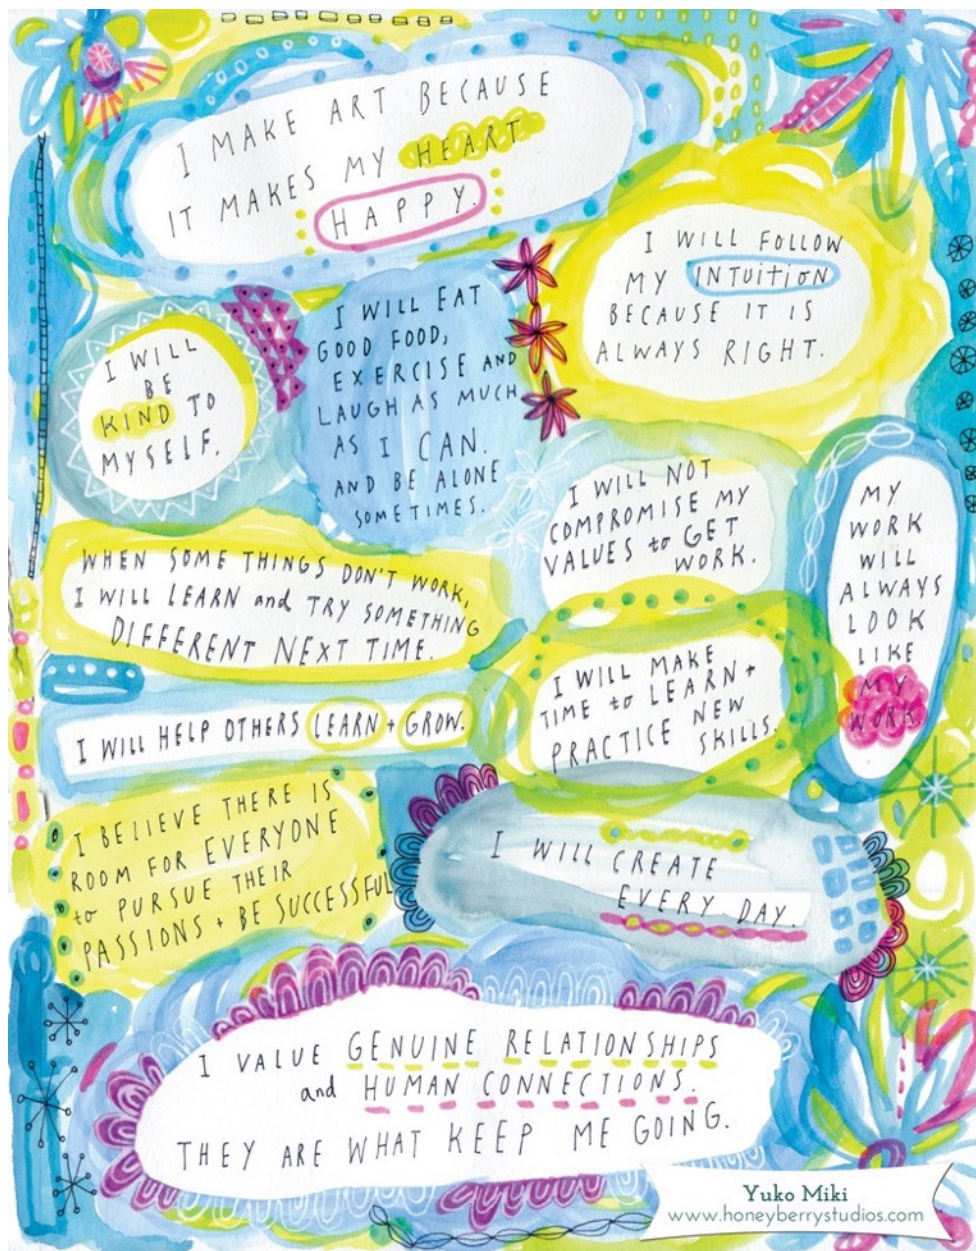 I MAKE ART BECAUSE
IT MAKES MY HEART
HAPPY.
I WILL FOLLOW
MY INTUITION
BECAUSE IT IS
ALWAYS RIGHT.
I WILL
BE
KIND TO
MYSELF.
I WILL EAT
GOOD FOOD,
EXERCISE AND
LAUGH AS MUCH
AS I CAN.
AND BE ALONE
SOMETIMES.
I WILL NOT
COMPROMISE MY
VALUES to GET
WORK.
MY
WORK
WILL
ALWAYS
LOOK
LIKE
MY
WORK
WHEN SOME THINGS DON'T WORK,
I WILL LEARN and TRY SOMETHING
DIFFERENT NEXT TIME.
I WILL MAKE
TIME to LEARN +
PRACTICE NEW
SKILLS.
I WILL HELP OTHERS LEARN + GROW.
I BELIEVE THERE IS
ROOM FOR EVERYONE
to PURSUE THEIR
PASSIONS + BE SUCCESSFUL
I WILL CREATE
EVERY DAY.
I VALUE GENUINE RELATIONSHIPS
and HUMAN CONNECTIONS.
THEY ARE WHAT KEEP ME GOING.
Yuko Miki
www.honeyberrystudios.com